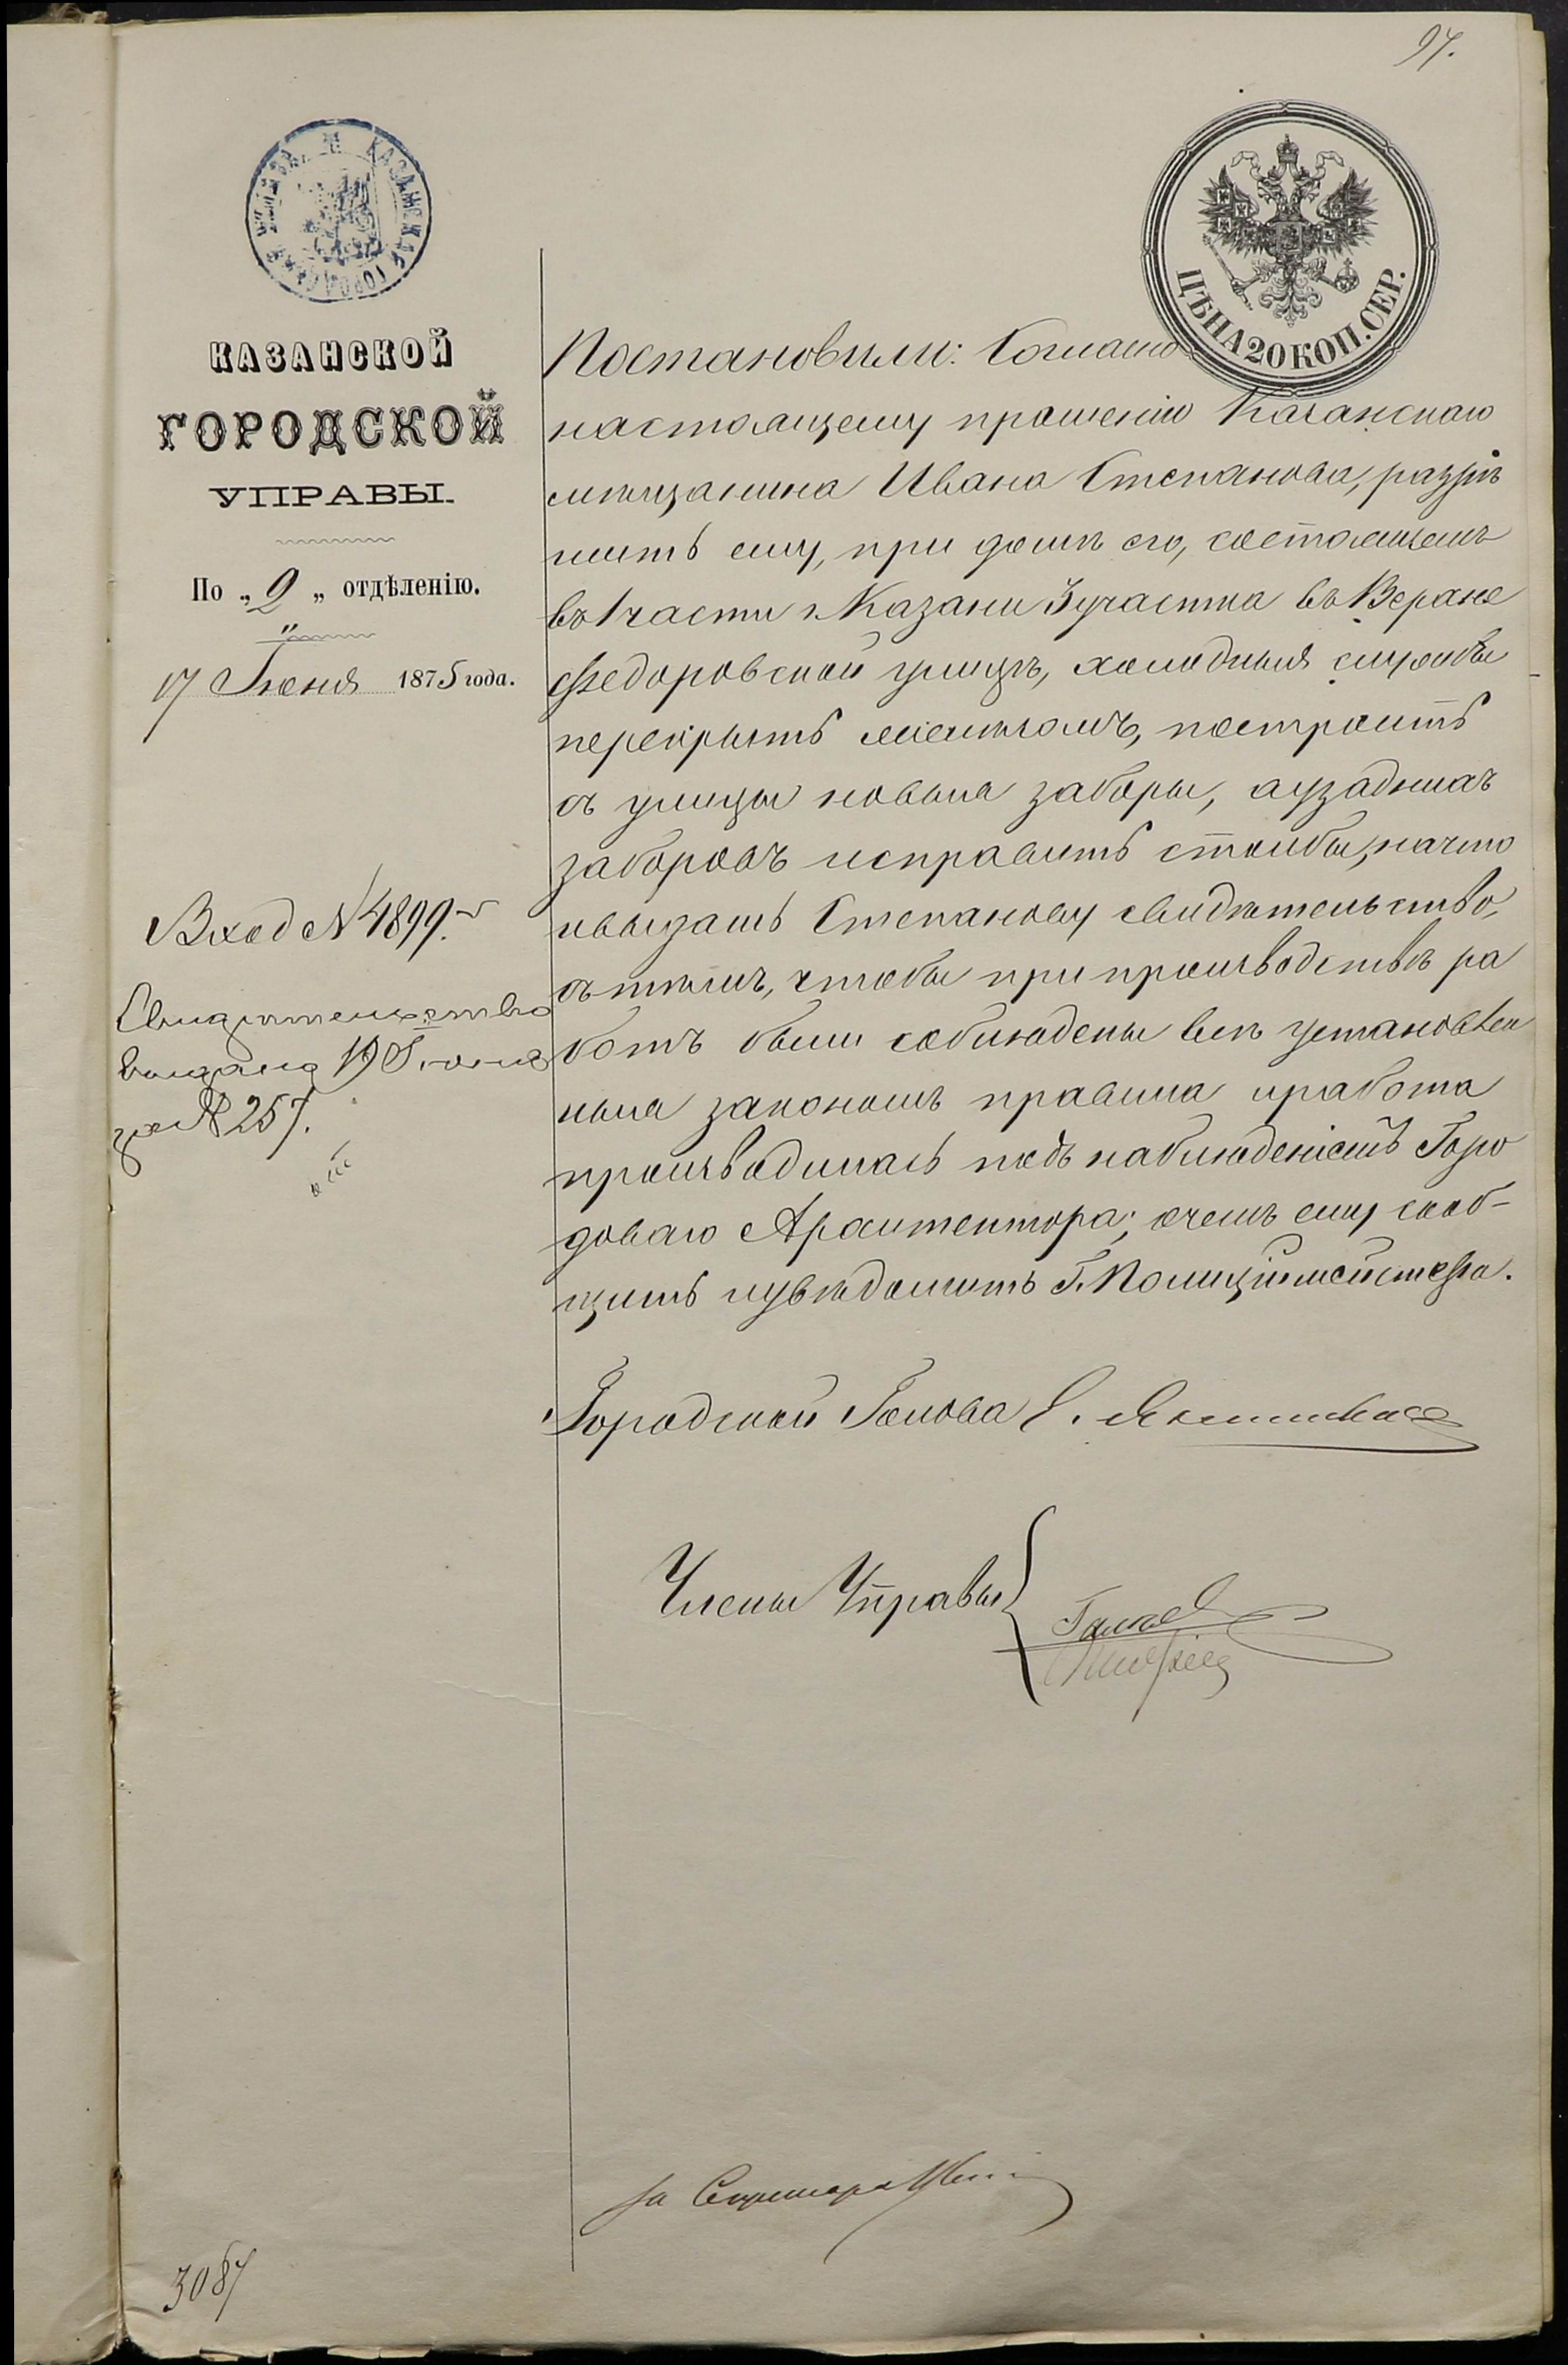 97.
КАЗАНСКАЯ ГОРОДСКАЯ УПРАВА
ЦѢНА 20 КОП. СЕР.
КАЗАНСКОЙ
ГОРОДСКОЙ
УПРАВЫ.
По „2„ отдѣленію.
17 Іюня 1875 года.
Вход № 4899.
Свидѣтельство
выдано 19 Іюня
за № 257.
Постановили: Согласно
настоящему прошенію Казанскаго
мѣщанина Ивана Степанова, разрѣ
шить ему, при домѣ его, состоящемъ
въ 1 части г. Казани 3 участка въ
Федоровской улицѣ, холодныя службы
перекрыть желѣзомъ, построить
съ улицы новые заборы, а у заднихъ
заборовъ исправить столбы, на что
и выдать Степанову свидѣтельство,
съ тѣмъ, чтобы при производствѣ ра
ботъ были соблюдены всѣ установлен
ныя закономъ правила и работа
производилась подъ наблюденіемъ Горо
доваго Архитектора; о чемъ ему сооб-
щить и увѣдомить Г. Полиціймейстера.
Городской Голова Е.
Члены Управы
За Секретаря
3087